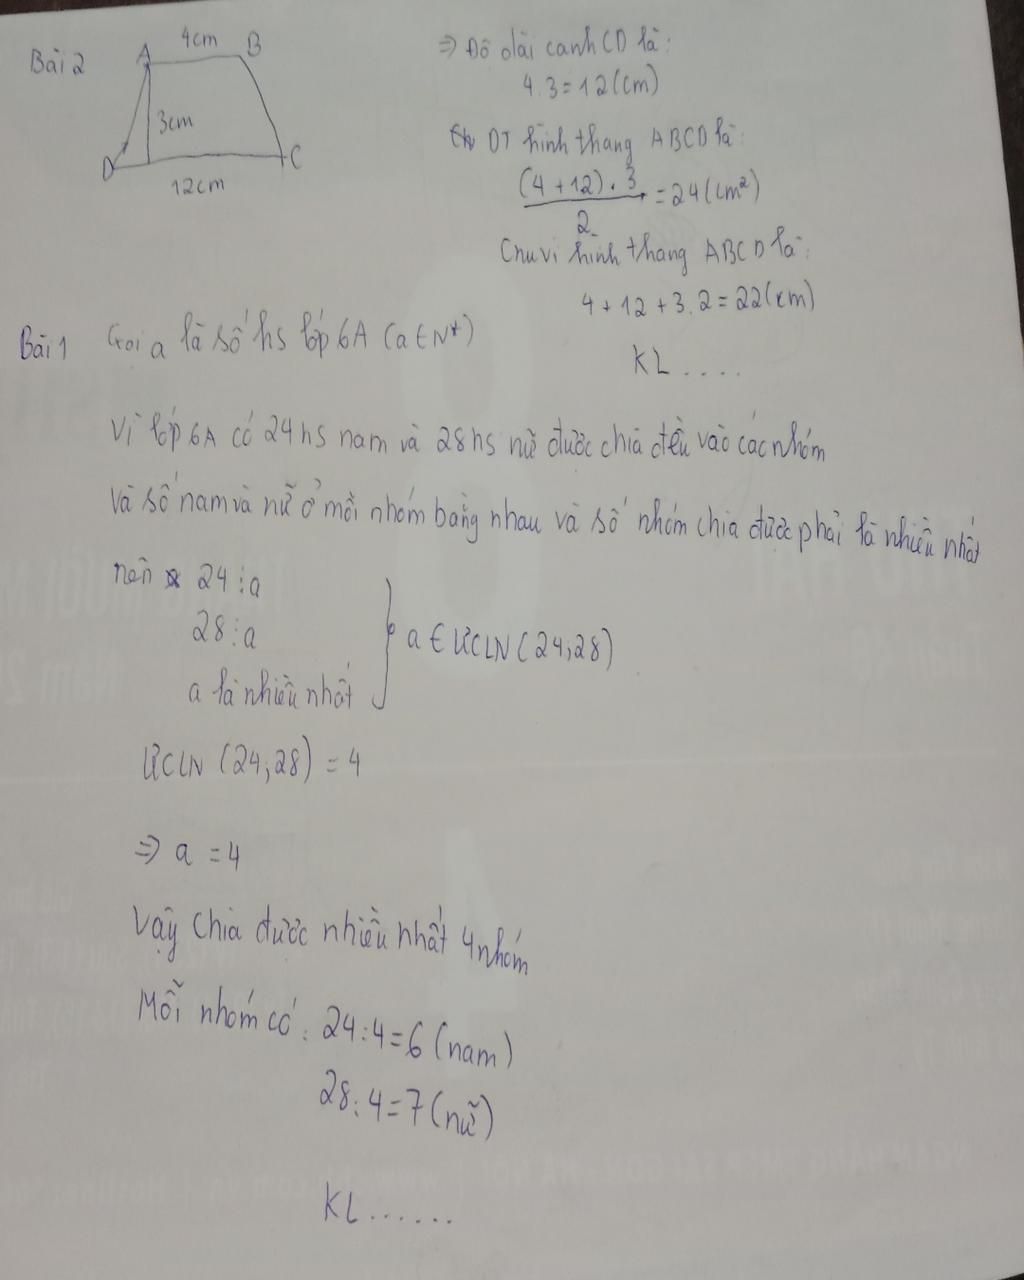 Bài 2
4cm
A B
3cm
D C
12cm
⇒ Độ dài cạnh CD là:
4.3=12(cm)
DT hình thang ABCD là:
(4+12).3
2
=24(cm²)
Chu vi hình thang ABCD là:
4+12+3.2=22(cm)
KL....
Bài 1 Gọi a là số hs lớp 6A (a∈N*)
Vì lớp 6A có 24hs nam và 28hs nữ được chia đều vào các nhóm
và số nam và nữ ở mỗi nhóm bằng nhau và số nhóm chia được phải là nhiều nhất
nên 24⋮a
28⋮a
a là nhiều nhất
} a∈ƯCLN(24;28)
ƯCLN (24;28) = 4
⇒ a = 4
Vậy chia được nhiều nhất 4 nhóm
Mỗi nhóm có: 24:4=6(nam)
28:4=7(nữ)
KL......